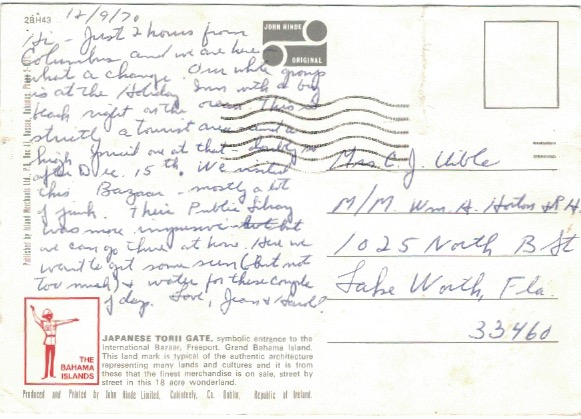 28H43
12/9/70
Hi - Just 2 hours from
Columbus and we are here
what a change. Our whole group
is at the Holiday Inn with a big
beach right on the ocean. This is
strictly a tourist area and a
high priced one at that -
after Dec. 15th. We visited
this Bazaar - mostly a lot
of junk. Their Public Library
was more impressive but
we can go there at home. Here we
want to get some sun (but not
too much) & water for these couple
of days. Love, Jean &
JOHN HINDE
ORIGINAL
Mrs. C. J. Uible
M/M. Wm. A. Horton
1025 North B St
Lake Worth, Fla.
33460
Published by Island Merchants Ltd., P.O. Box Nassau, Bahamas. Phone
THE
BAHAMA
ISLANDS
JAPANESE TORII GATE, symbolic entrance to the
International Bazaar, Freeport, Grand Bahama Island.
This land mark is typical of the authentic architecture
representing many lands and cultures and it is from
these that the finest merchandise is on sale, street by
street in this 18 acre wonderland.
Produced and Printed by John Hinde Limited, Cabinteely, Co. Dublin, Republic of Ireland.